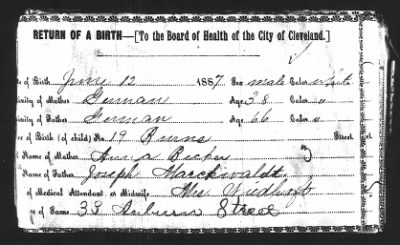 RETURN OF A BIRTH—[To the Board of Health of the City of Cleveland.]
of Birth June 12 1887 Sex male Color white
ivity of Mother German Age 38 Color "
ivity of Father German Age 66 Color "
e of Birth (of child) No. 19 Burns Street
Name of Mother Anna Becker
Name of Father Joseph Marckwaldt
of Medical Attendant or Midwife Mrs
of Same 33 Auburn Street